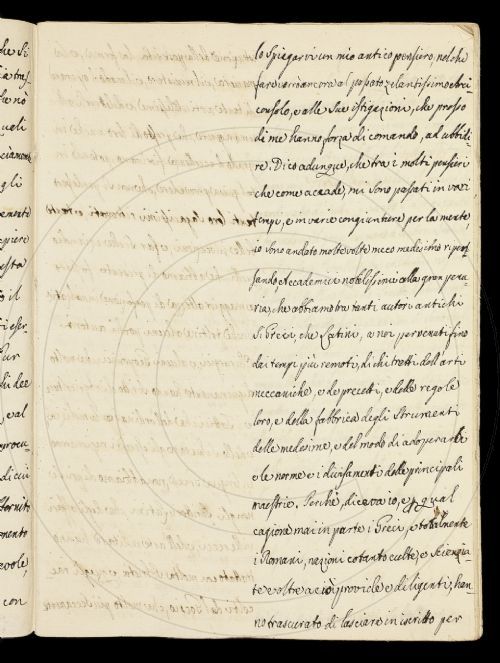 he Si
tras
no
uoli
gli
emente
piere
esta
il
Pur
di dee
e al
procu
di cui
fornito
mento
evole,
con
lo spiegarvi un mio antico pensiero, nel che
fare ancora al passato zelantissimo Arci
consolo, e alle sue istigazioni, che presso
di me hanno forza di comando, ad ubbidi
re. Dico adunque, che tra i molti pensieri
che come accade, mi sono passati in varj
tempi, e in varie congiunture per la mente,
io sono andato molte volte meco medesimo ripen
sando Accademici nobilissimi alla gran penu
ria, che abbiamo tra tanti autori antichi
sì Greci, che Latini, a noi pervenuti fino
dai tempi più remoti, di chi tratti dell'arti
meccaniche, e de precetti, e delle regole
loro, e della fabbrica degli Strumenti
delle medesime, e del modo di adoperarli
e le norme e i divisamenti delle principali
maestrie. Perchè, diceva io, e qual
cagione mai in parte i Greci, e totalmente
i Romani, nazioni cotanto culte, e Scienzia
te e oltre a ciò provide e diligenti, han
no trascurato di lasciare in iscritto per